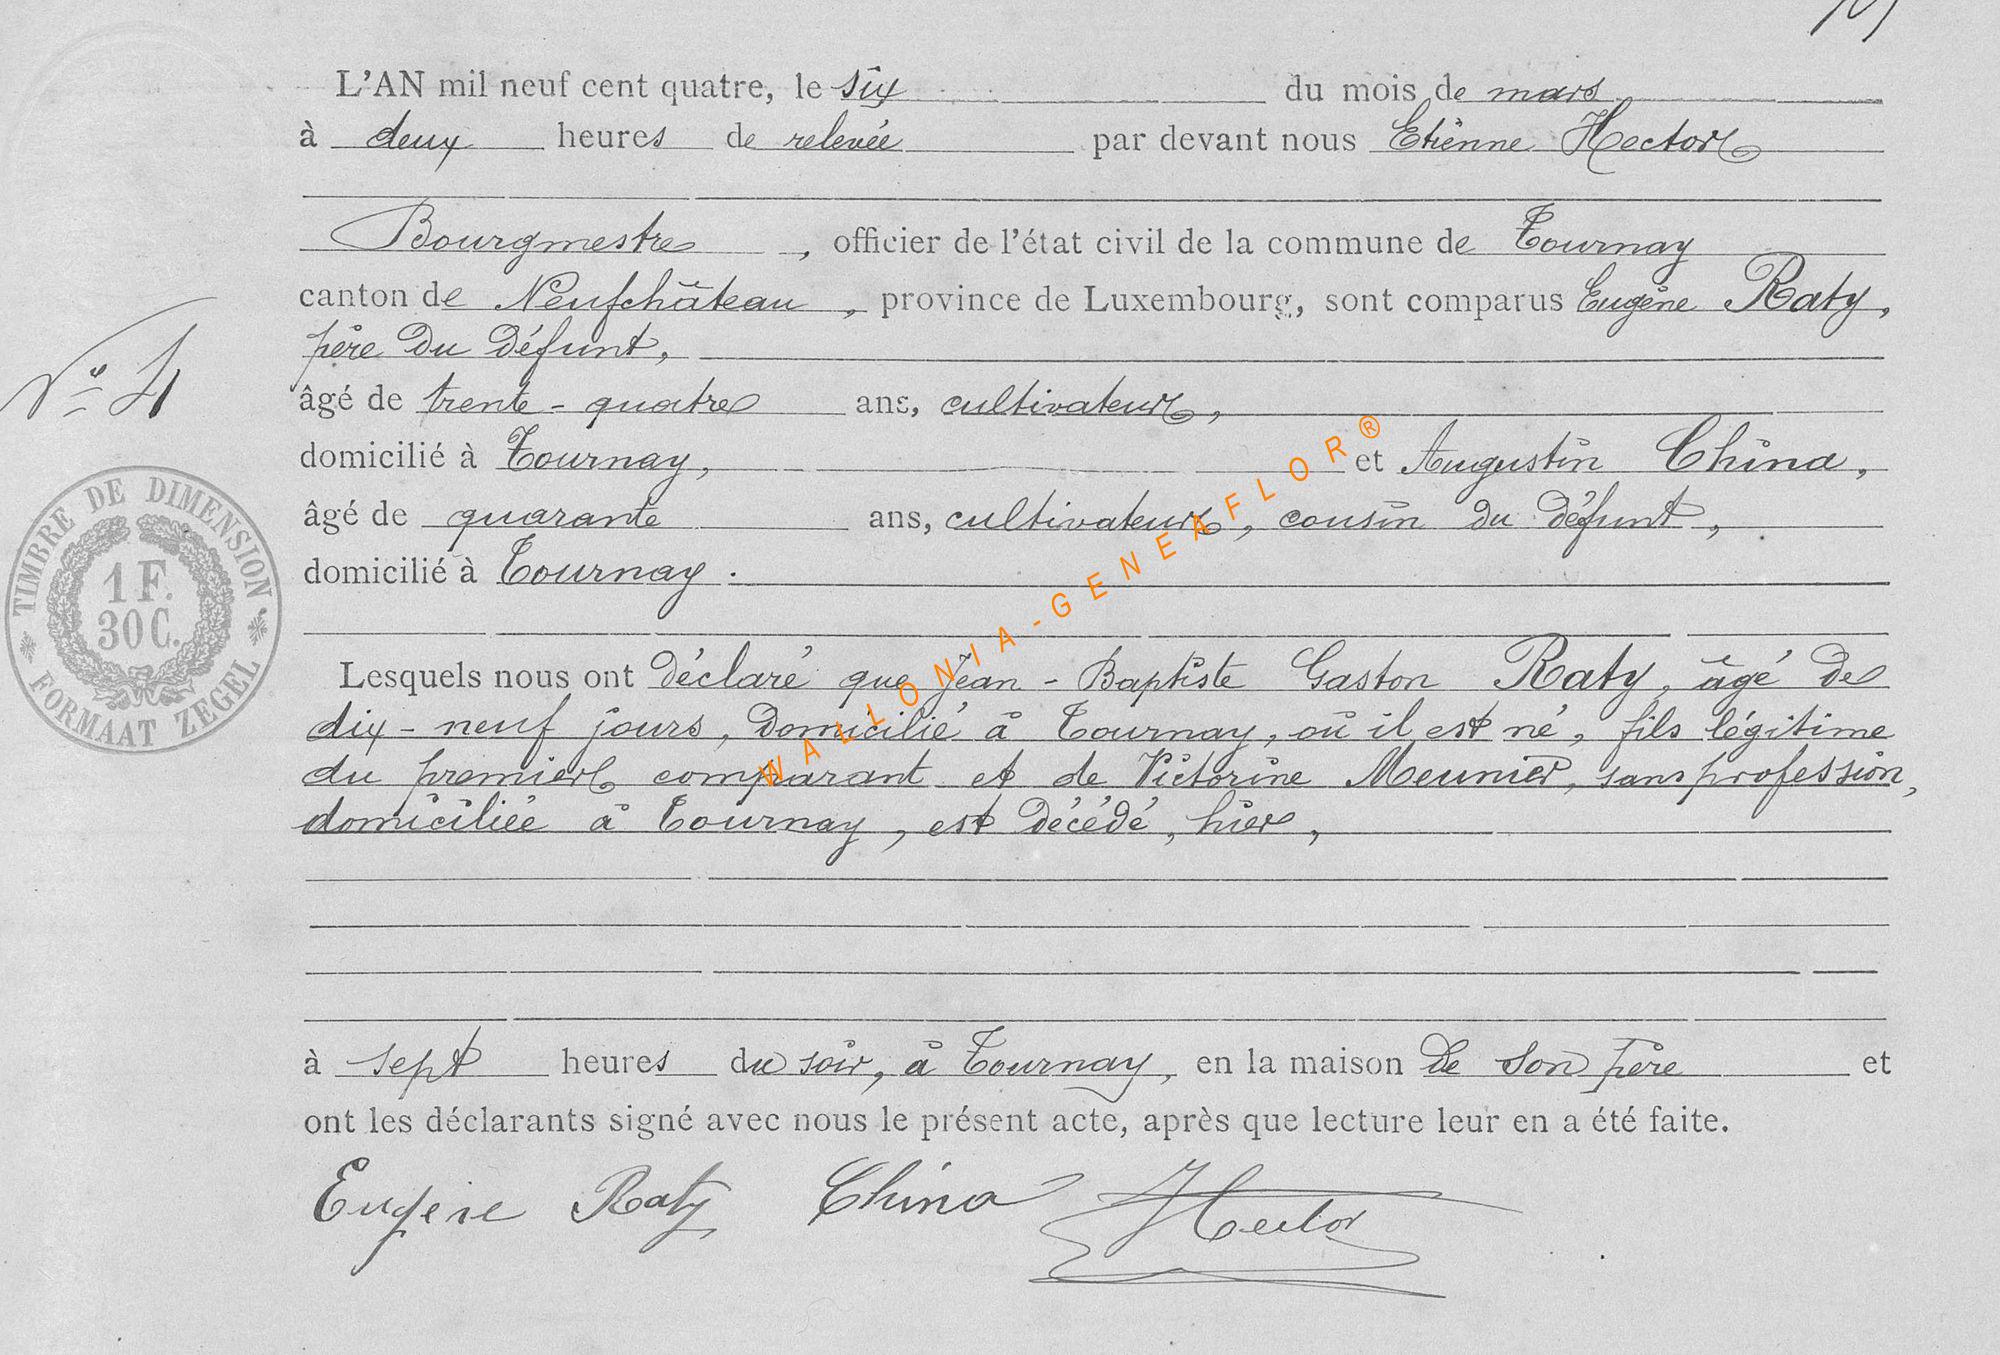 L'AN mil neuf cent quatre, le six du mois de mars
à deux heures de relevée par devant nous Etienne Hector
Bourgmestre, officier de l'état civil de la commune de Tournay
canton de Neufchâteau, province de Luxembourg, sont comparus Eugène Raty,
père du défunt,
N° 4
âgé de trente-quatre ans, cultivateur,
domicilié à Tournay, et Augustin China,
âgé de quarante ans, cultivateur, cousin du défunt,
domicilié à Tournay.
TIMBRE DE DIMENSION
1 F.
30 C.
FORMAAT ZEGEL
WALLONIA-GENEAFLOR®
Lesquels nous ont déclaré que Jean-Baptiste Gaston Raty, âgé de
dix-neuf jours, domicilié à Tournay, où il est né, fils légitime
du premier comparant et de Victorine Meunier, sans profession,
domiciliée à Tournay, est décédé, hier,
à sept heures du soir, à Tournay, en la maison de son père et
ont les déclarants signé avec nous le présent acte, après que lecture leur en a été faite.
Eugène Raty China Hector